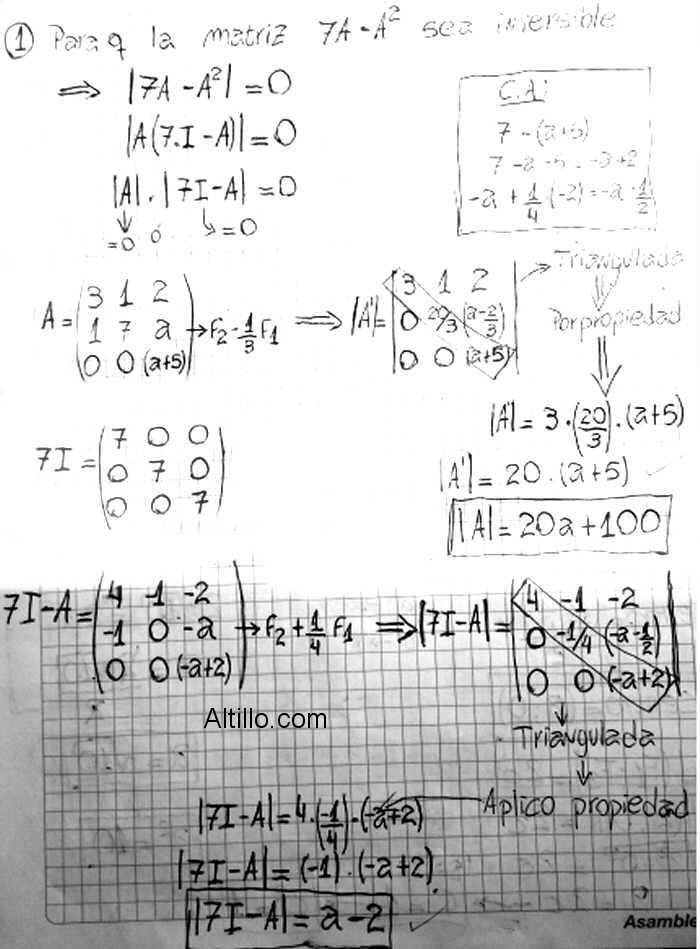 ① Para q la matriz 7A - A² sea inversible
⟹ |7A - A²| = 0
|A(7.I - A)| = 0
|A| . |7I - A| = 0
= 0 ó = 0
C.A:
7 - (a+5)
7 - a - 5 = -a+2
-a + 1/4 . (-2) = -a - 1/2
A = (3 1 2
1 7 a
0 0 (a+5)) → F₂ - 1/3 F₁ ⟹ |A'| = |3 1 2
0 20/3 (a-2/3)
0 0 (a+5)|
Triangulada
Por propiedad
|A'| = 3 . (20/3) . (a+5)
|A'| = 20 . (a+5)
|A| = 20a + 100
7I = (7 0 0
0 7 0
0 0 7)
7I - A = (4 -1 -2
-1 0 -a
0 0 (-a+2)) → F₂ + 1/4 F₁ ⟹ |7I - A| = |4 -1 -2
0 -1/4 (-a-1/2)
0 0 (-a+2)|
Altillo.com
Triangulada
Aplico propiedad
|7I - A| = 4 . (-1/4) . (-a+2)
|7I - A| = (-1) . (-a+2)
|7I - A| = a - 2
Asamble